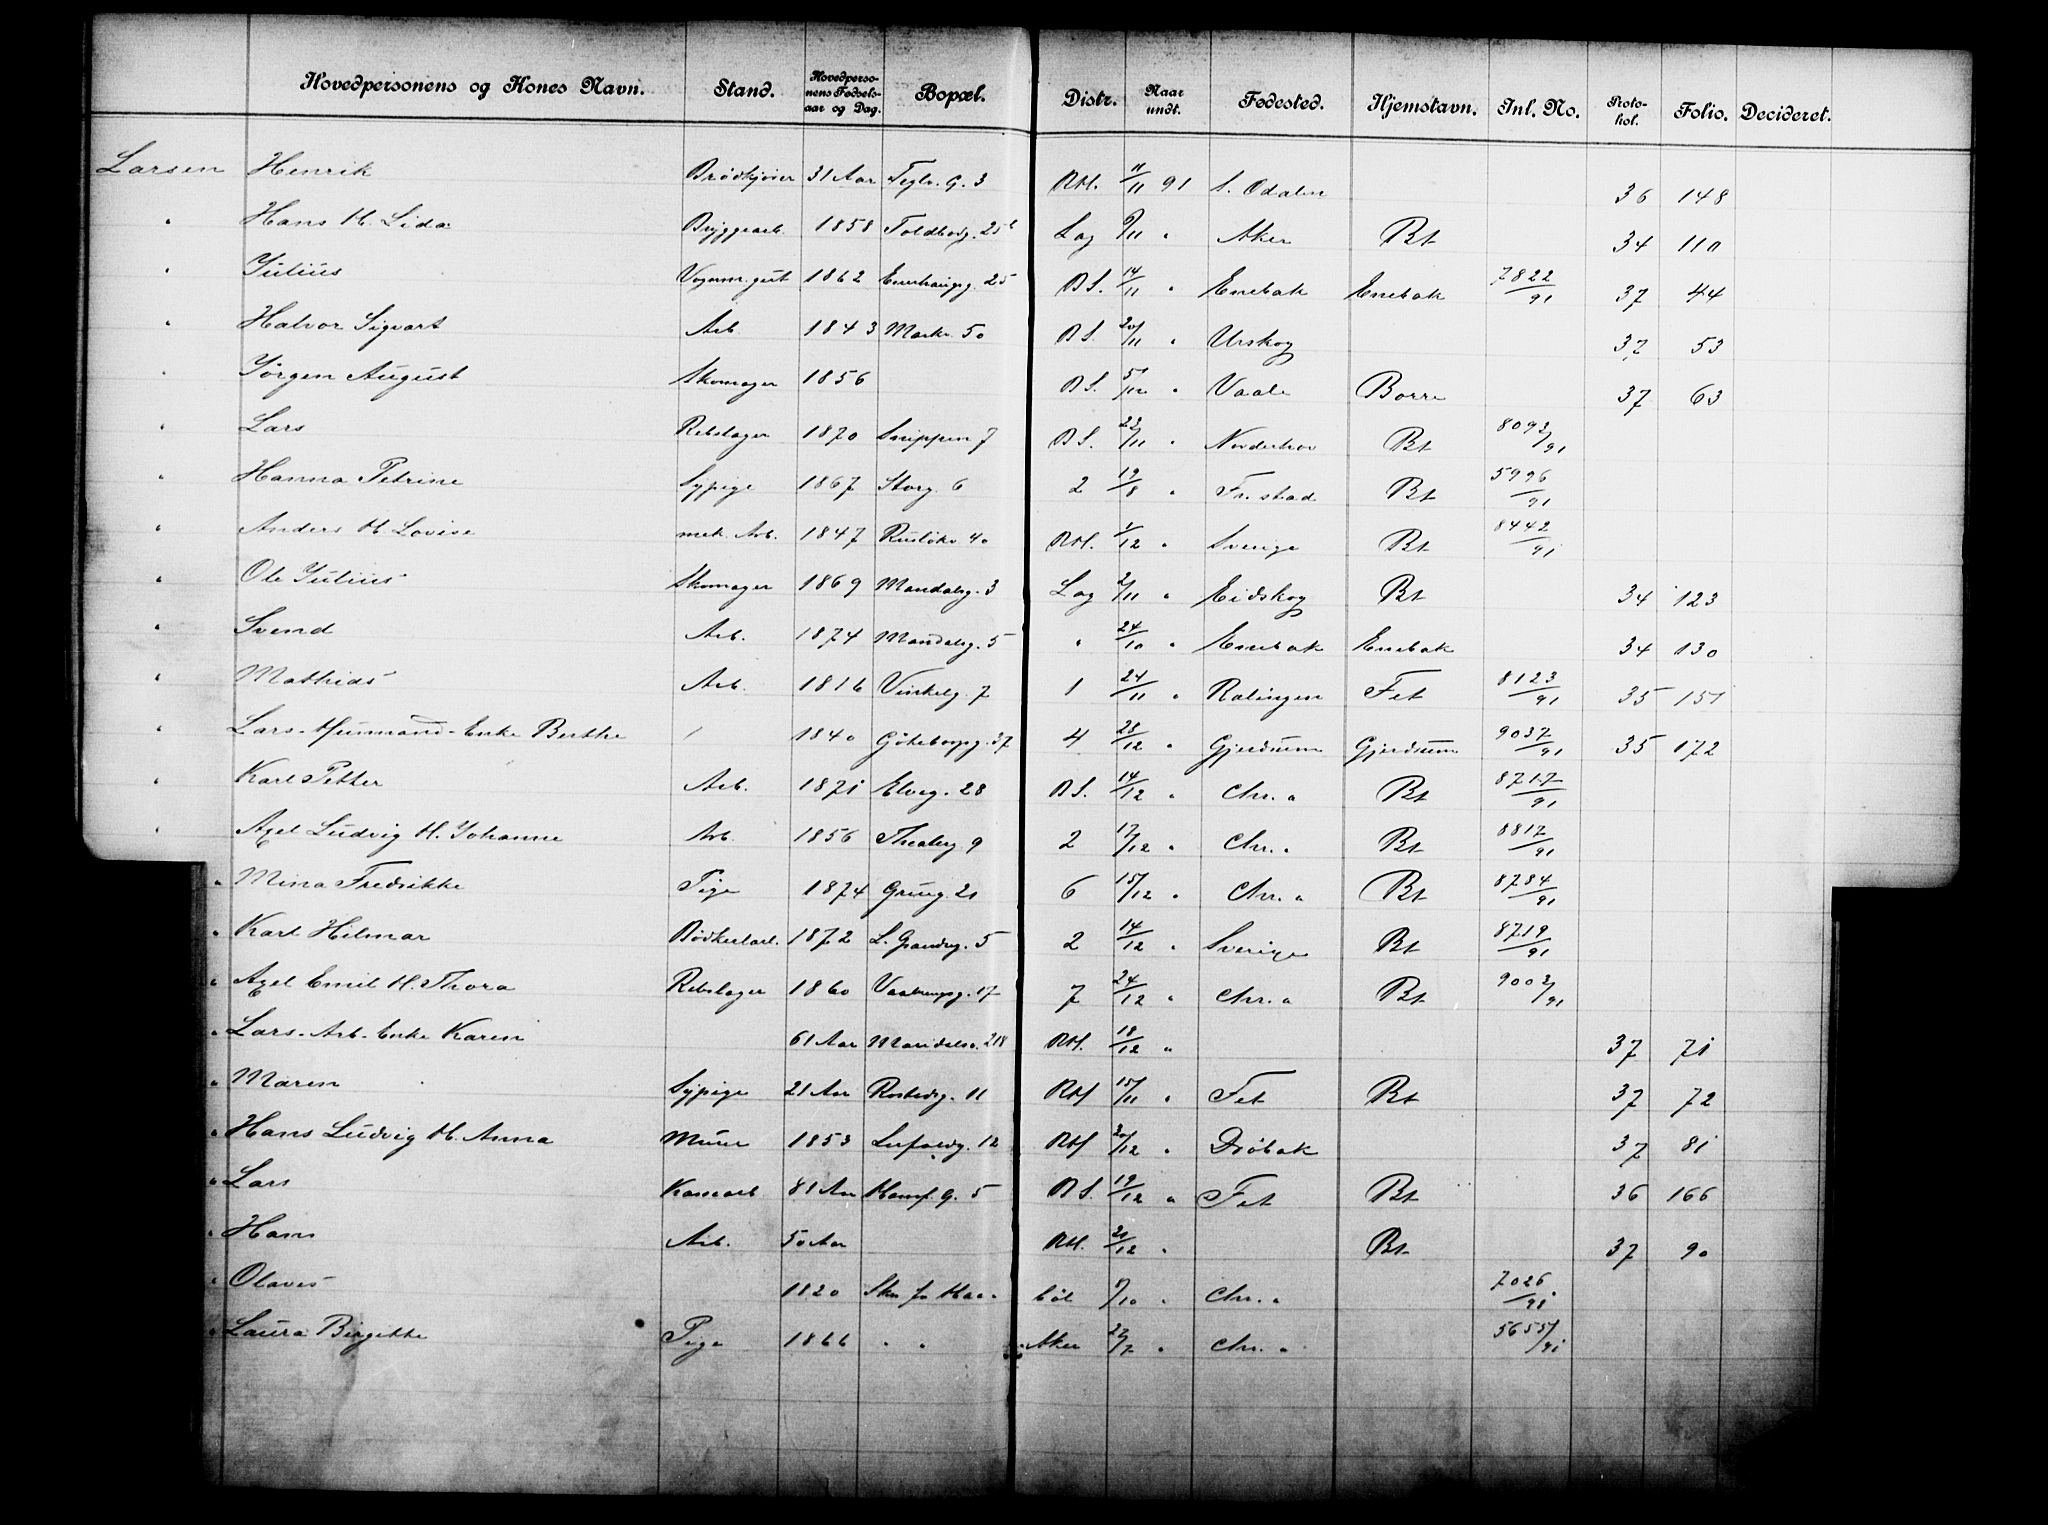 Hovedpersonens og Kones Navn. Stand. Hovedpersonens Fødselsaar og Dag. Bopæl. Distr. Naar undt. Fødested. Hjemstavn. Inl. No. Protokol. Folio. Decideret.
Larsen Henrik Brødkjører 31 Aar Teglv. G. 3 RH. 11/11 91 S. Odalen 36 148
" Hans H. Lida Bryggearb. 1858 Toldbodg. 25b Lag 9/11 " Aker Bt 34 110
" Julius Vognm. gut 1862 Enerhaugsg. 25 BS. 14/11 " Enebak Enebak 7822/91 37 44
" Halvor Sigvart Arb. 1843 Markv. 50 BS. 20/11 " Urskog 37 53
" Jørgen August Skomager 1856 BS. 5/12 " Vaale Borre 37 63
" Lars Rebslager 1870 Snippen 7 BS. 23/11 " Norderhov Bt 8093/91
" Hanna Petrine Sypige 1867 Storg. 6 2 19/8 " Fr.stad Bt 5996/91
" Anders H. Lovise mek. Arb. 1847 Ruseløkv 40 RH. 1/12 " Sverige Bt 8442/91
" Ole Julius Skomager 1869 Mandalsg. 3 Lag 2/11 " Eidskog Bt 34 123
" Svend Arb. 1874 Mandalsg. 5 " 24/10 " Enebak Enebak 34 130
" Mathias Arb. 1816 Vinkelg. 7 1 24/11 " Rælingen Fet 8123/91 35 151
" Lars - Husmand - Enke Berthe / 1840 Göteborgg. 37 4 28/12 " Gjerdrum Gjerdrum 9037/91 35 172
" Karl Petter Arb. 1871 Elveg. 28 BS. 14/12 " Chr.a Bt 8717/91
" Axel Ludvig H. Johanne Arb. 1856 Theaterg 9 2 17/12 " Chr.a Bt 8817/91
" Mina Fredrikke Pige 1874 Grung. 21 6 15/12 " Chr.a Bt 8784/91
" Karl Hilmar Bødkerlærl. 1872 L. Grændsg. 5 2 14/12 " Sverige Bt 8719/91
" Axel Emil H. Thora Rebslager 1860 Vaalerengg. 17 7 24/12 " Chr.a Bt 9003/91
" Lars - Arb. Enke Karen 61 Aar Maridalsv. 218 RH. 18/12 " 37 71
" Maren Sypige 21 Aar Rostedsg. 11 RH 15/11 " Fet Bt 37 72
" Hans Ludvig H. Anna Murer 1853 12 RH 20/12 " Drøbak 37 81
" Lars Kornarb 81 Aar Hamf. G. 5 BS. 19/12 " Fet Bt 36 166
" Hans Arb. 50 Aar RH. 21/12 " Bt 37 90
" Olaves 1820 9/10 " Chr.a 7026/91
" Laura Birgitte Pige 1866 " " Aker 22/7 " Chr.a 5655/91